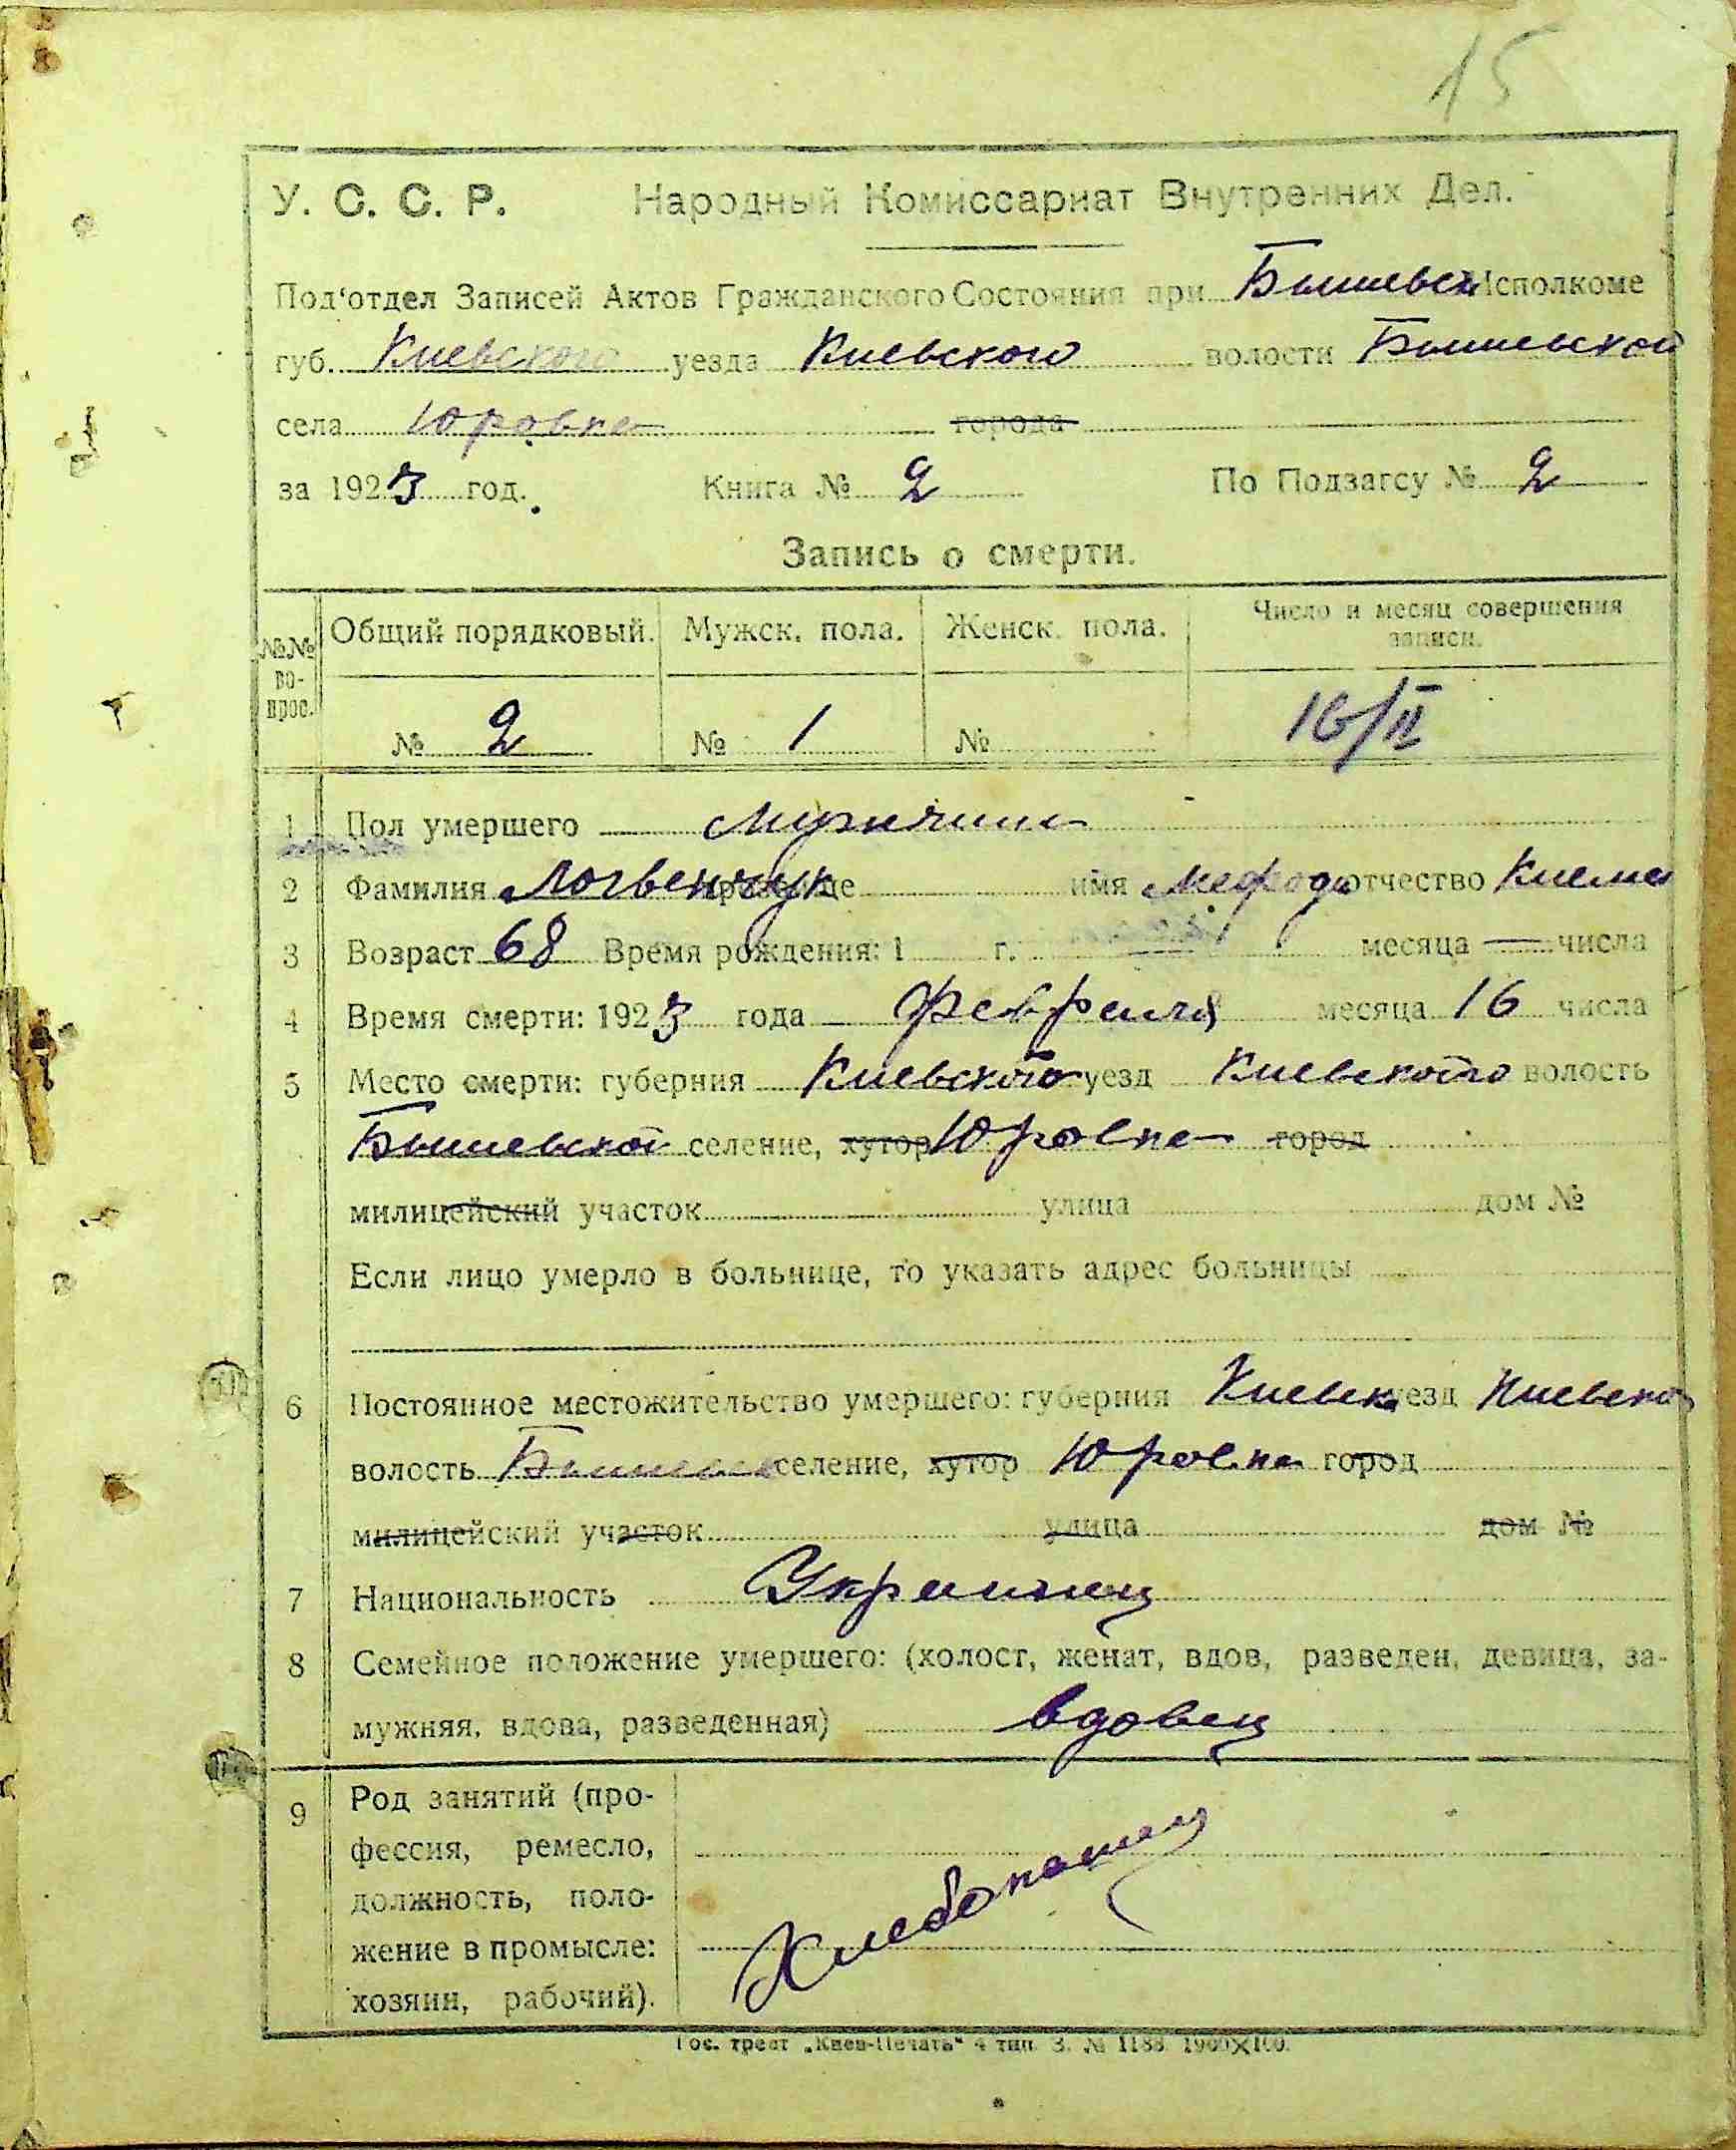 15
У. С. С. Р. Народный Комиссариат Внутренних Дел.
Под'отдел Записей Актов Гражданского Состояния при Бышевск Исполкоме
губ. Киевского уезда Киевского волости Бышевской
села Юровка города
за 1923 год. Книга № 2 По Подзагсу № 2
Запись о смерти.
№№ во-прос. Общий порядковый. Мужск. пола. Женск. пола. Число и месяц совершения записи.
№ 2 № 1 № 16/II
1 Пол умершего Мужчина
2 Фамилия Логвенчук прозвище имя Мефодий отчество Клема
3 Возраст 68 Время рождения: 1 г. — месяца — числа
4 Время смерти: 1923 года Февраля месяца 16 числа
5 Место смерти: губерния Киевского уезд Киевского волость
Бышевской селение, хутор Юровка город
милицейский участок улица дом №
Если лицо умерло в больнице, то указать адрес больницы
6 Постоянное местожительство умершего: губерния Киевск уезд Киевско
волость Бышевск селение, хутор Юровка город
милицейский участок улица дом №
7 Национальность Украинец
8 Семейное положение умершего: (холост, женат, вдов, разведен, девица, за-
мужняя, вдова, разведенная) вдовец
9 Род занятий (про-
фессия, ремесло,
должность, поло-
жение в промысле:
хозяин, рабочий).
Хлебопашец
Гос. трест „Киев-Печать“ 4 тип. З. № 1188. 1900×100.